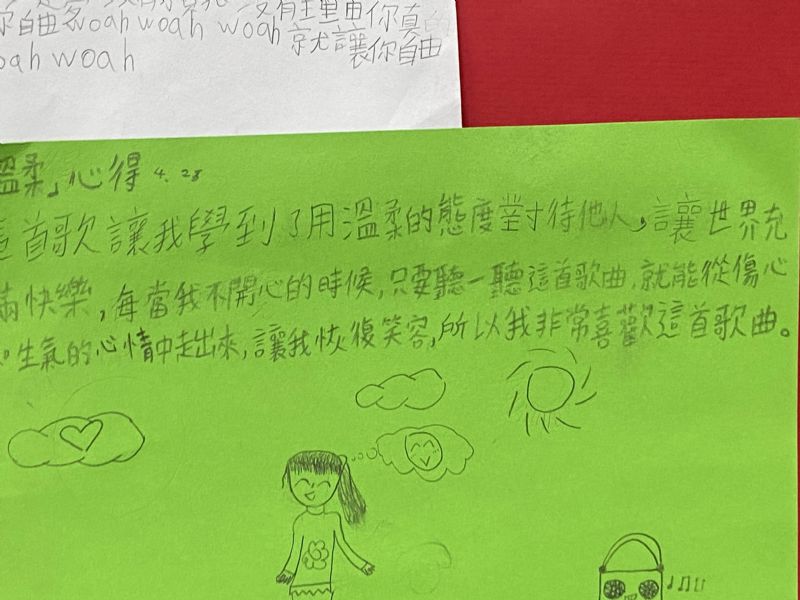 你自由多woah woah woah 沒有理由你真的
woah woah 就讓你自由
溫柔」心得 4.28
這首歌讓我學到了用溫柔的態度對待他人,讓世界充
滿快樂,每當我不開心的時候,只要聽一聽這首歌曲,就能從傷心
生氣的心情中走出來,讓我恢復笑容,所以我非常喜歡這首歌曲。